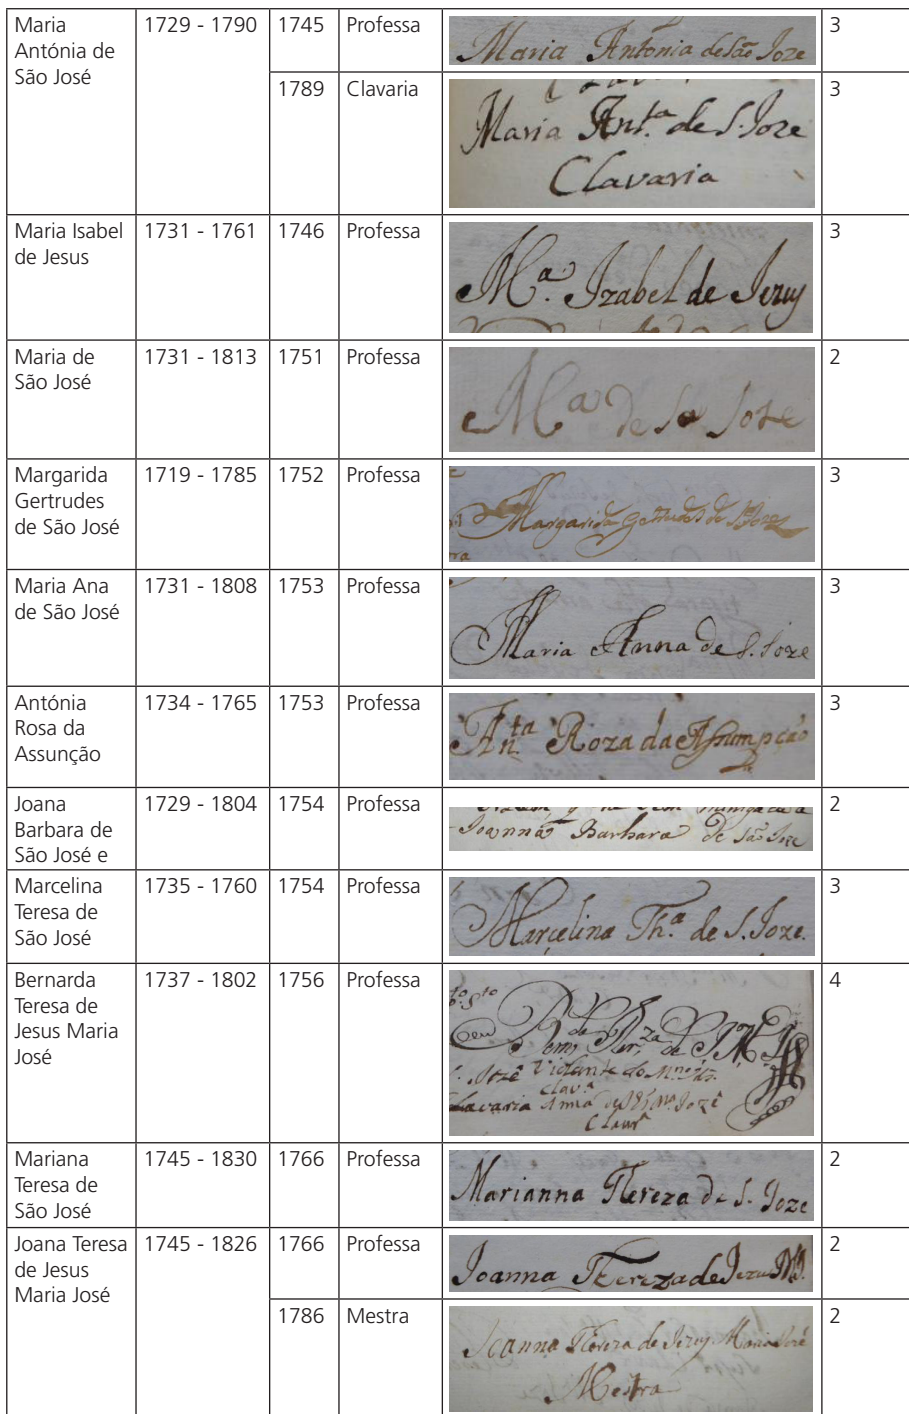 Maria
Antónia de
São José
1729 - 1790
1745
Professa
Maria Antonia de São Joze
3
1789
Clavaria
Maria Ant.ª de S. Joze
Clavaria
3
Maria Isabel
de Jesus
1731 - 1761
1746
Professa
M.ª Izabel de Jezuz
3
Maria de
São José
1731 - 1813
1751
Professa
Mª de So Joze
2
Margarida
Gertrudes
de São José
1719 - 1785
1752
Professa
Margarida Gertrudes de S Joze
3
Maria Ana
de São José
1731 - 1808
1753
Professa
Maria Anna de S. Joze
3
Antónia
Rosa da
Assunção
1734 - 1765
1753
Professa
An.ta Roza da Assumpção
3
Joana
Barbara de
São José e
1729 - 1804
1754
Professa
Joanna Barbara de São Joze
2
Marcelina
Teresa de
São José
1735 - 1760
1754
Professa
Marcelina Th.ª de S. Joze.
3
Bernarda
Teresa de
Jesus Maria
José
1737 - 1802
1756
Professa
de J M J
Jozê Violante do
Clav.ª
Clavaria Anna de Jozê
Clavrª
4
Mariana
Teresa de
São José
1745 - 1830
1766
Professa
Marianna Thereza de S. Joze
2
Joana Teresa
de Jesus
Maria José
1745 - 1826
1766
Professa
Joanna Thereza de Jezus M. J.
2
1786
Mestra
Joanna Thereza de Jezuz Maria José
Mestra
2